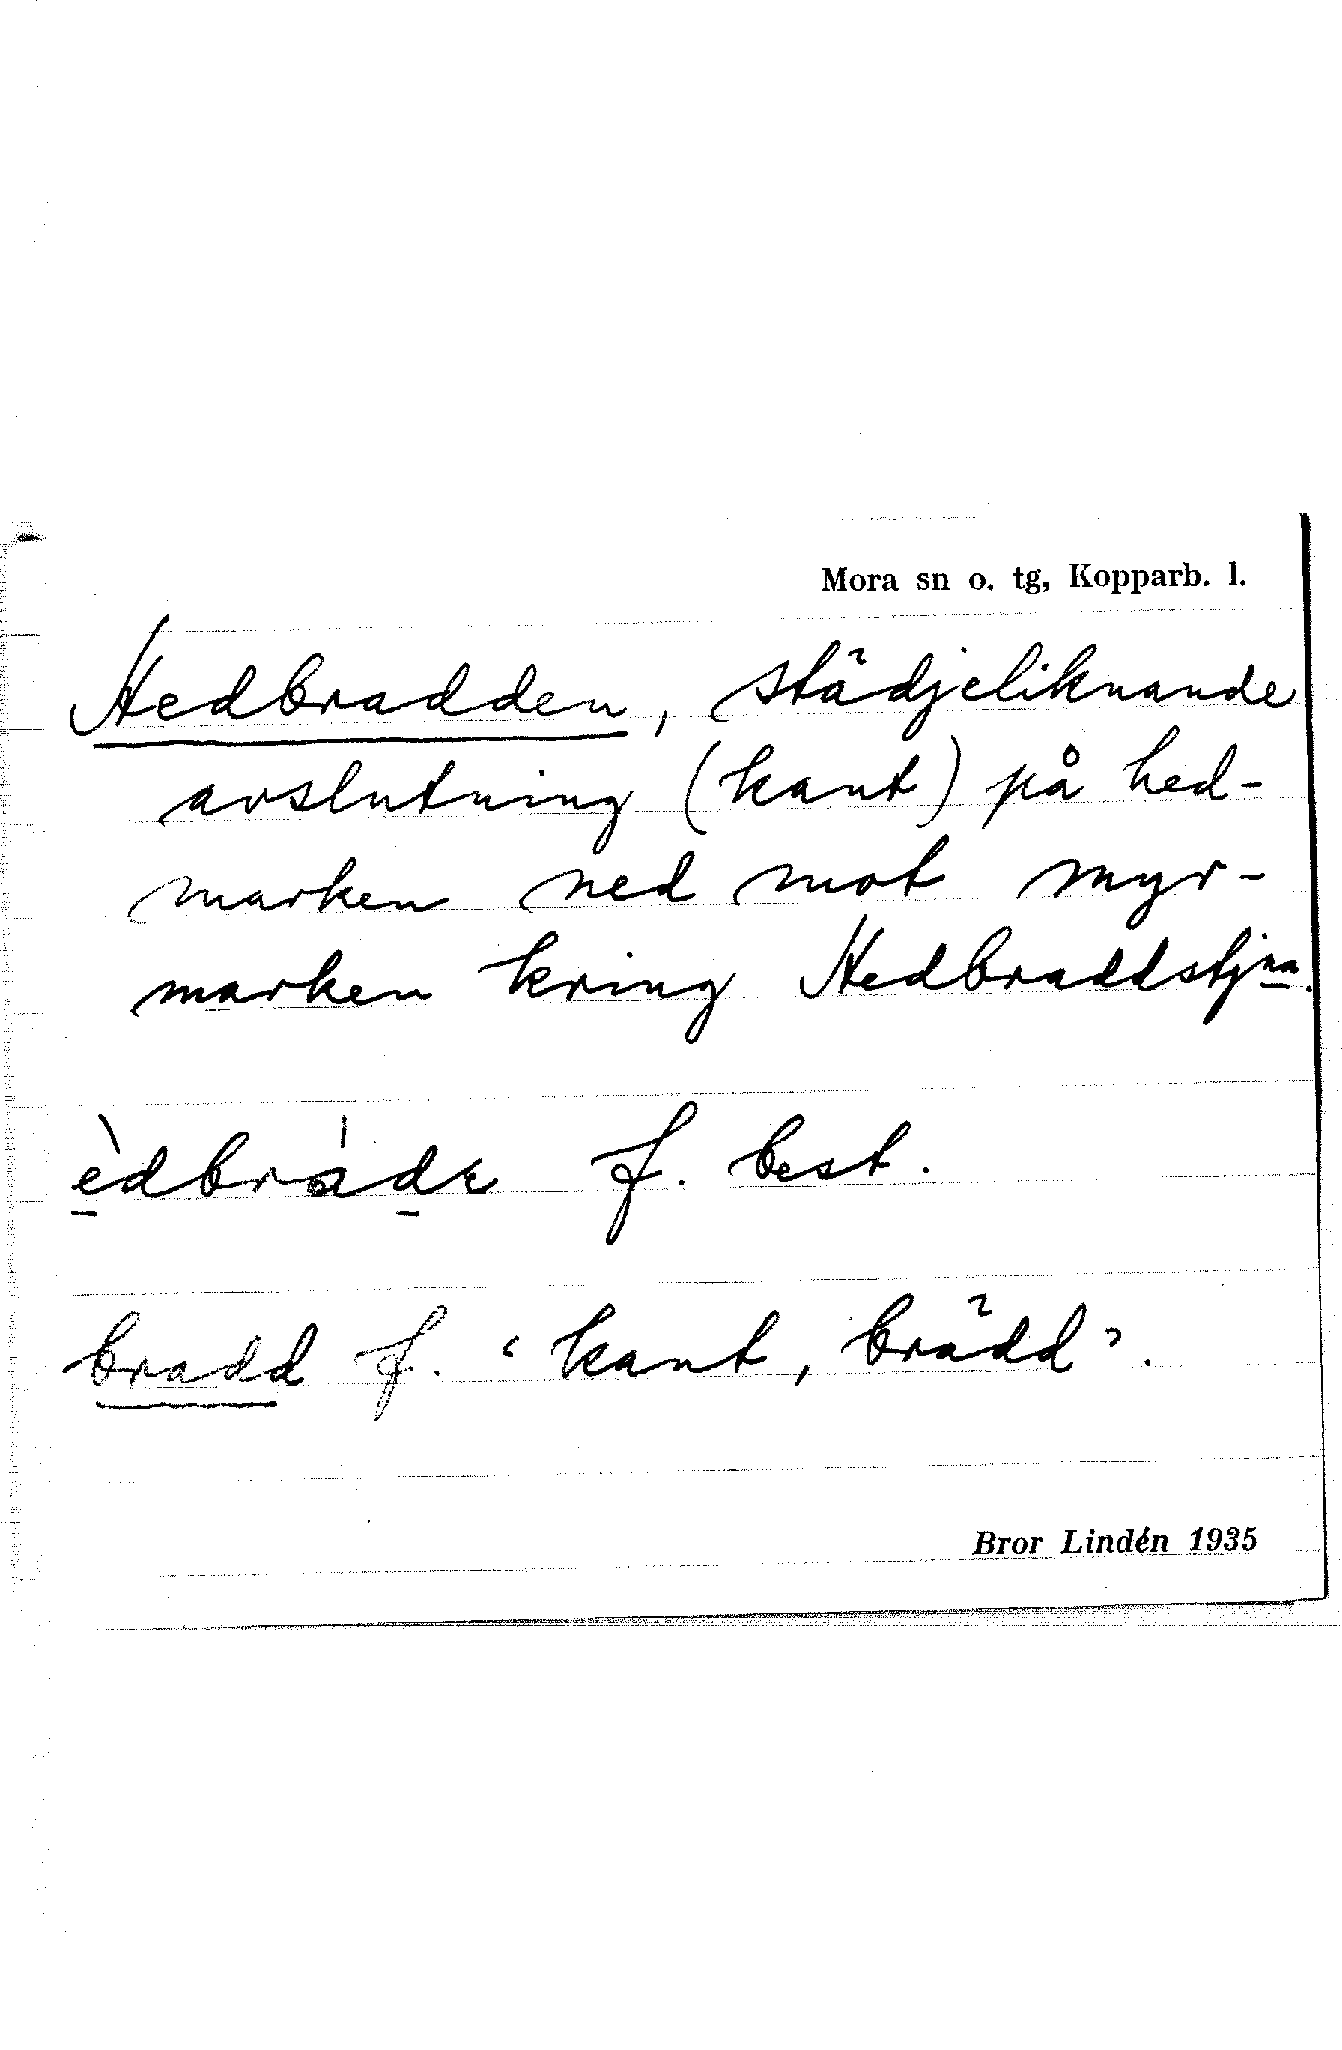 Mora sn o. tg, Kopparb. l.
Hedbradden, städjeliknande
avslutning (kant) på hed-
marken ned mot myr-
marken kring Hedbraddstjna.
èdbráde f. best.
bradd f. "kant, brädd".
Bror Lindén 1935